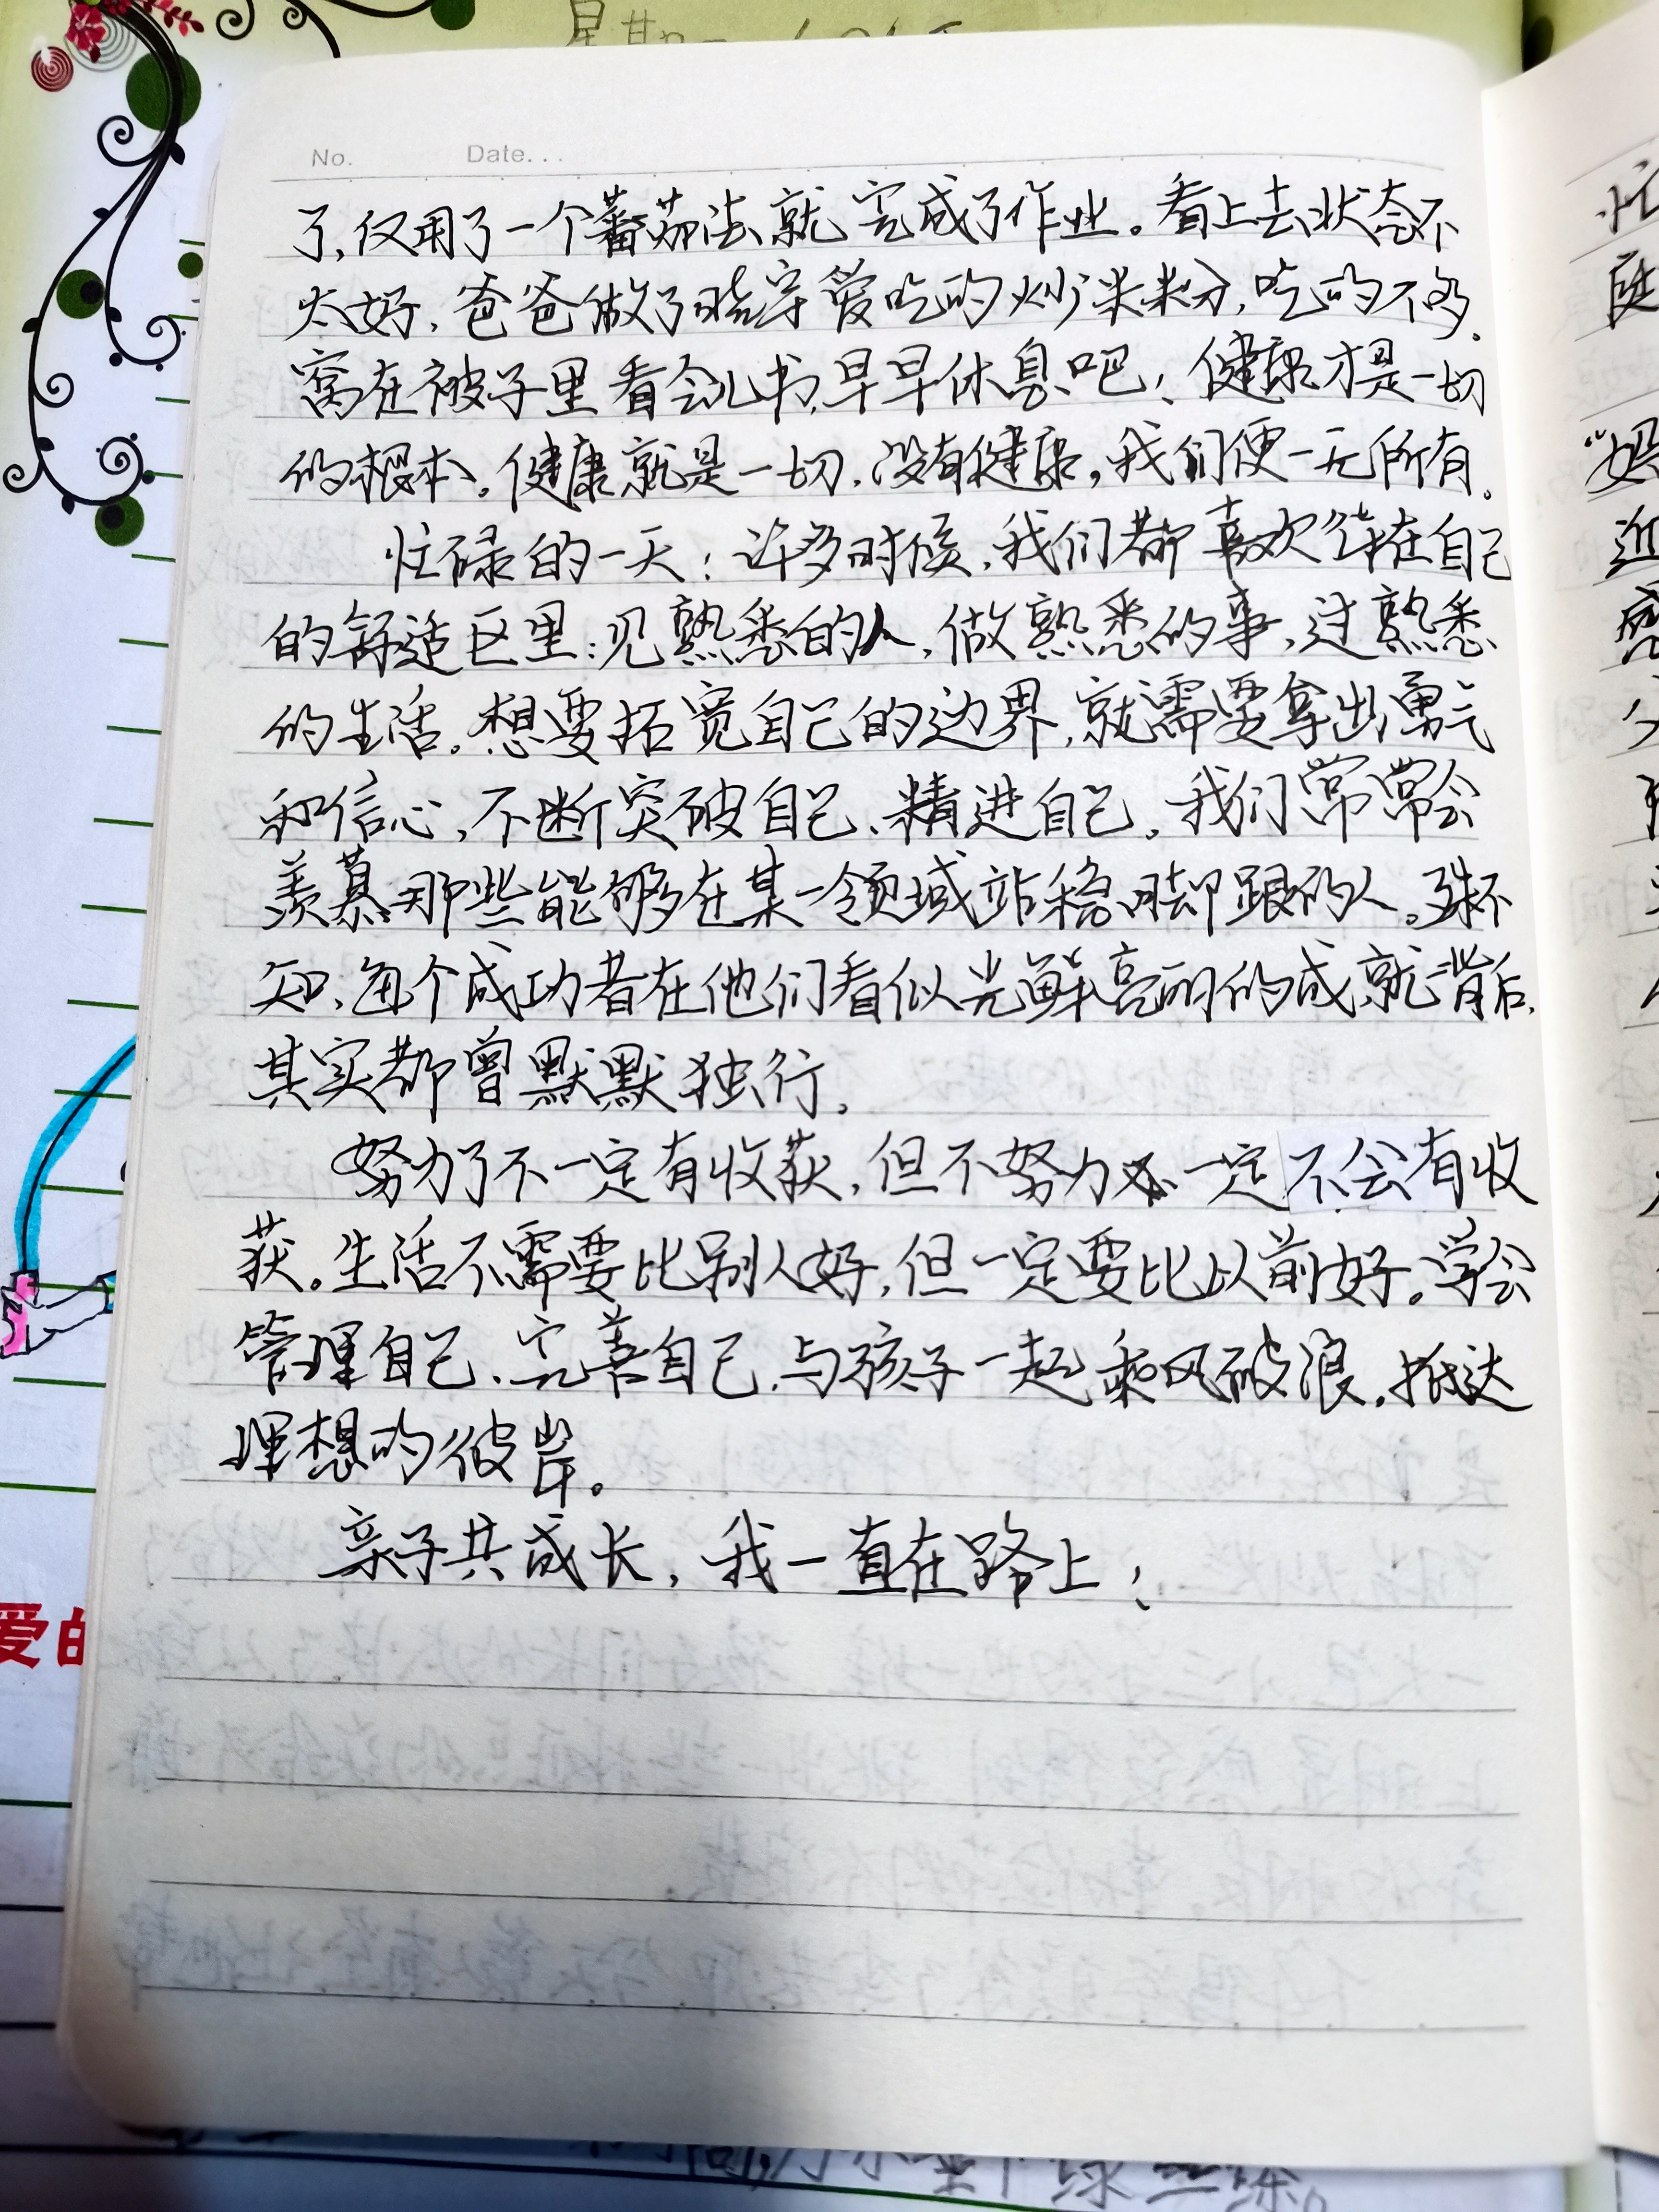 星期一
No. Date...
了,仅用了一个蕃茄法就完成了作业。看上去状态不
太好,爸爸做了晓宇爱吃的炒米粉,吃的不多。
窝在被子里看会儿书,早早休息吧!健康才是一切
的根本。健康就是一切,没有健康,我们便一无所有。
忙碌的一天!许多时候,我们都喜欢待在自己
的舒适区里:见熟悉的人,做熟悉的事,过熟悉
的生活。想要拓宽自己的边界,就需要拿出勇气
和信心,不断突破自己、精进自己。我们常常会
羡慕那些能够在某一领域站稳脚跟的人。殊不
知,每个成功者在他们看似光鲜亮丽的成就背后,
其实都曾默默独行。
努力了不一定有收获,但不努力一定不会有收
获。生活不需要比别人好,但一定要比以前好。学会
管理自己、完善自己,与孩子一起乘风破浪,抵达
理想的彼岸。
亲子共成长,我一直在路上!
爱的